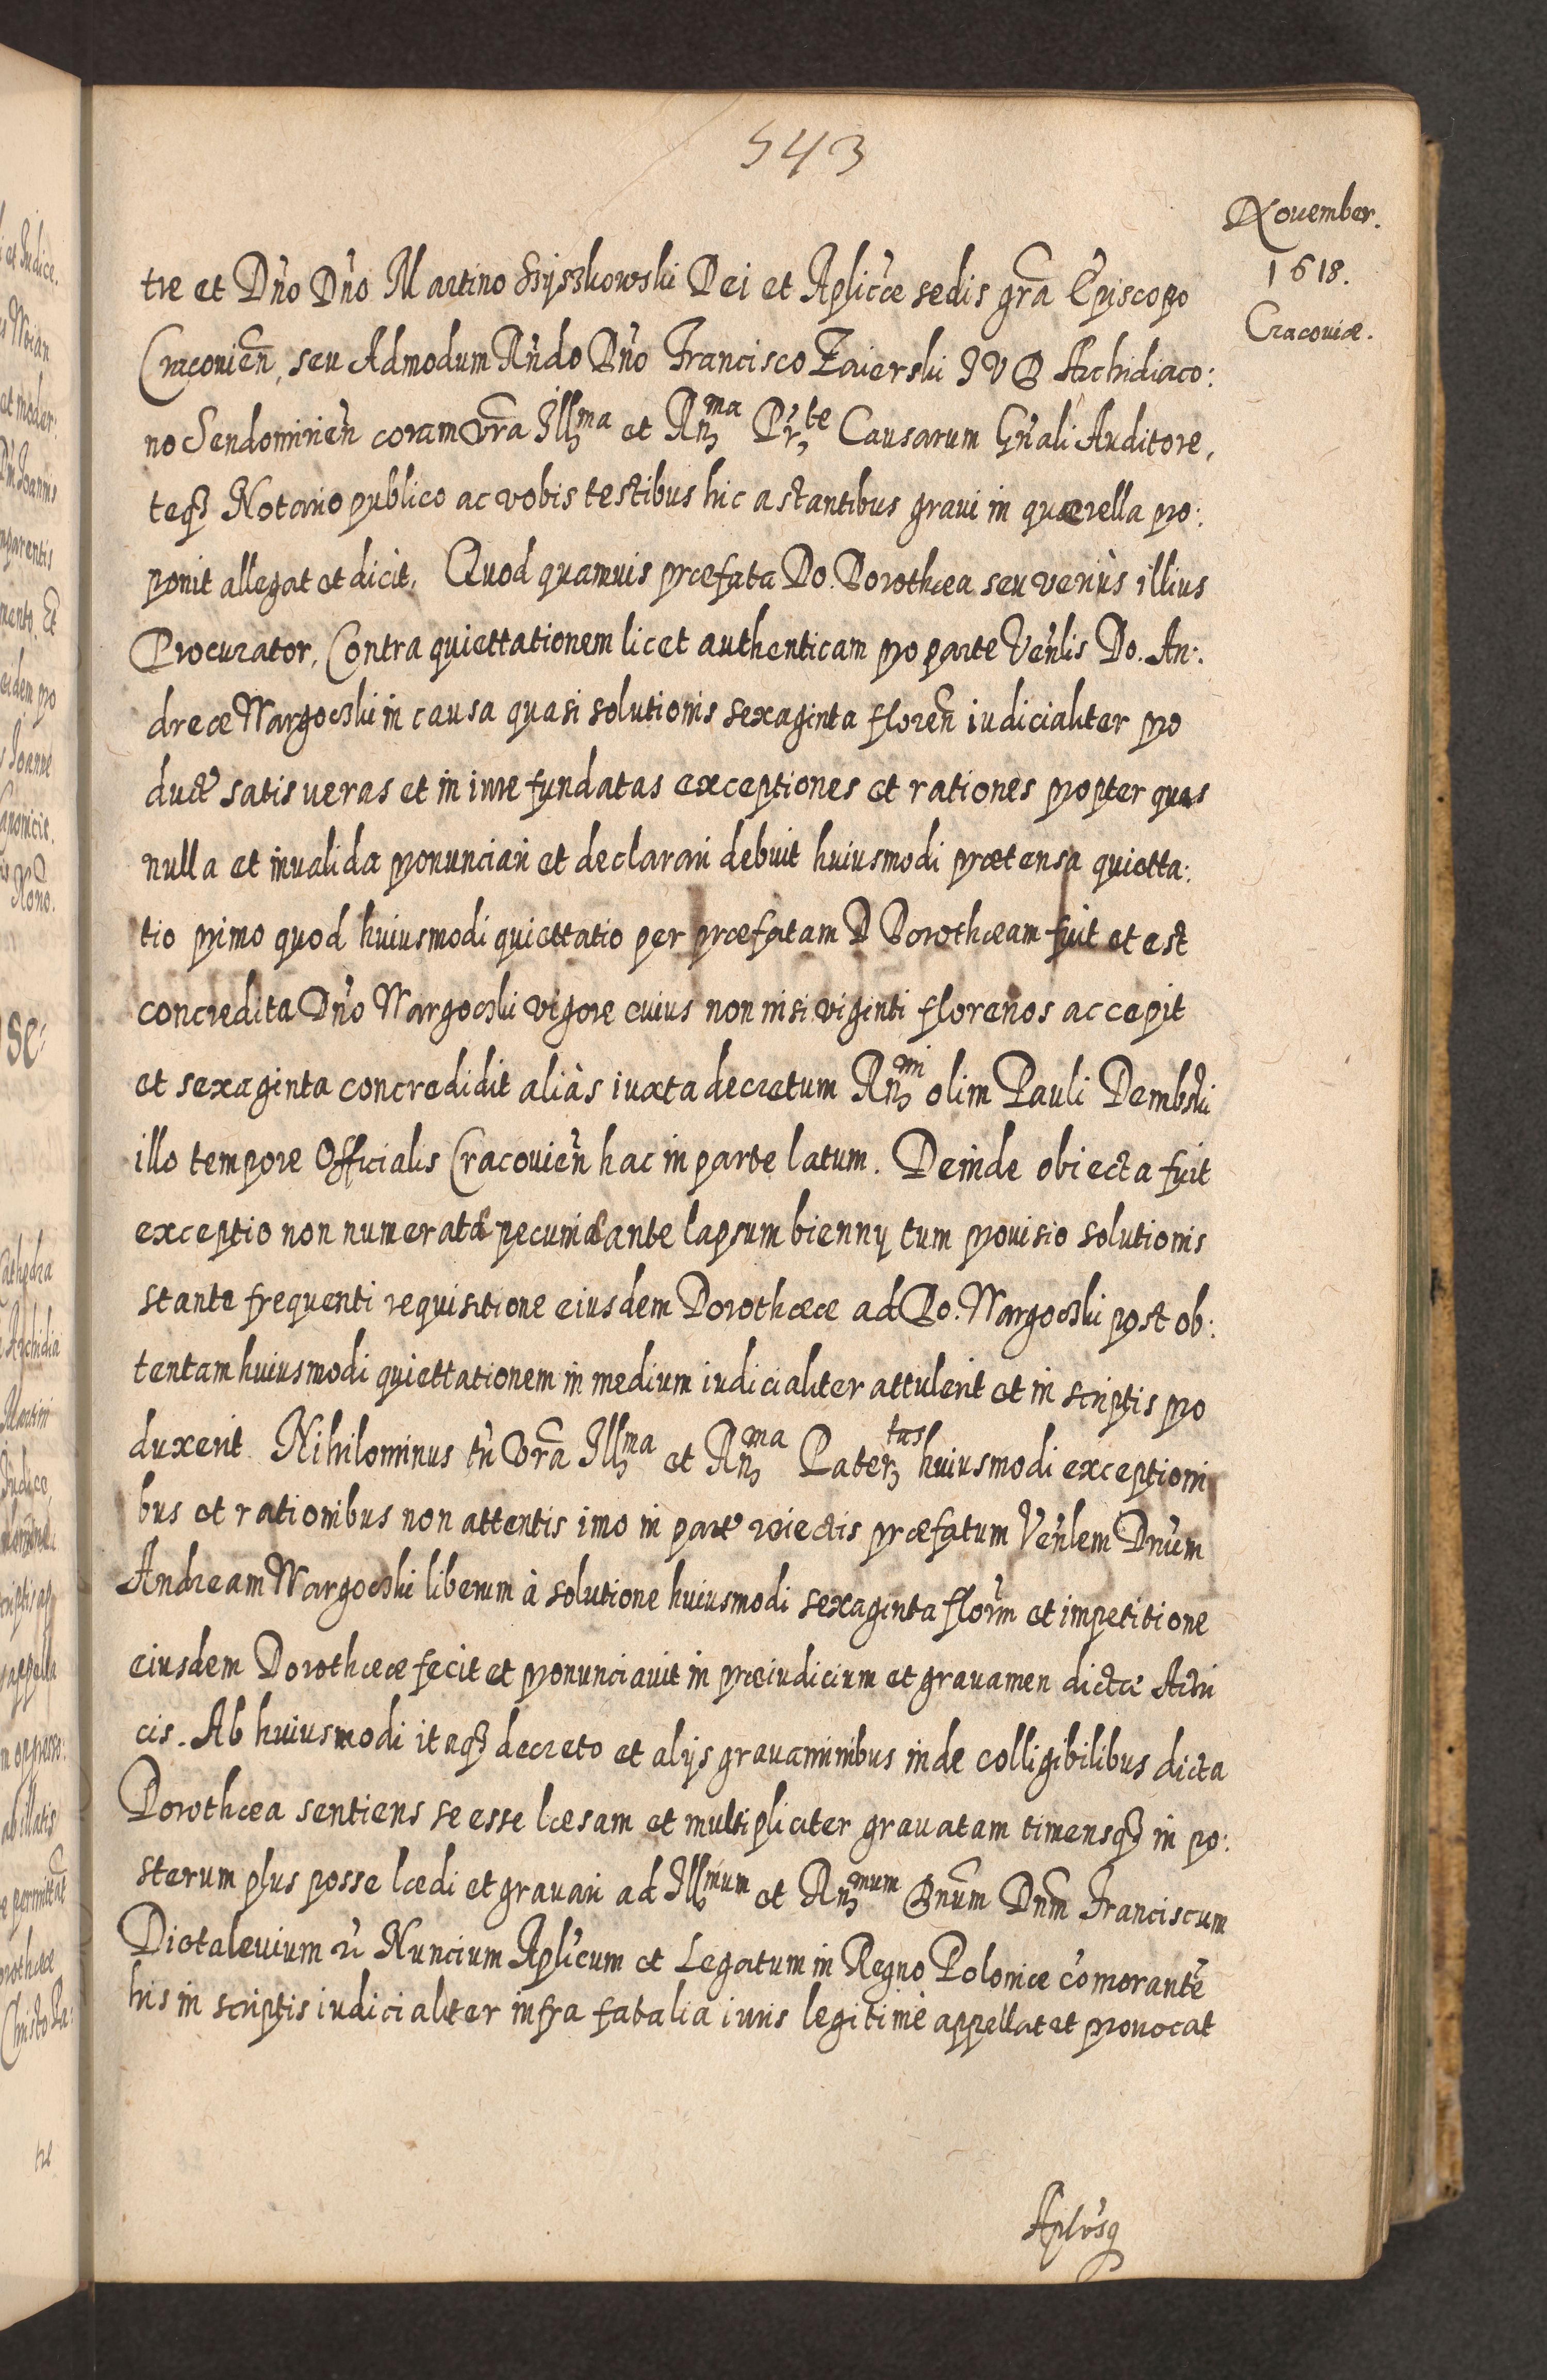 543
Nouember.
1618.
Cracouiæ.
tre et Dn̄o Dn̄o Martino Szyszkowski Dei et Aplicæ sedis gr̄a Episcopo
Cracouien̄, seu Admodum Rn̄do Dn̄o Francisco Zaierski I V D Archidiaco:
no Sendomirien̄ coram Vr̄a Illma et Rnma Prte Causarum Gn̄ali Auditore,
teq3 Notario publico ac vobis testibus hic astantibus graui in quærella pro:
ponit allegat et dicit. Quod quamuis præfata Do. Dorothæa seu veriùs illius
Procurator, Contra quiettationem licet authenticam pro parte Ven̄lis Do. An:
dreæ Wargocki in causa quasi solutionis sexaginta floren̄ iudicialiter pro
duct' satis ueras et in iure fundatas exceptiones et rationes propter quas
nulla et inualida pronunciari et declarari debuit huiusmodi prætensa quietta:
tio primo quod huiusmodi quiettatio per præfatam D Dorothæam fuit et est
concredita Dn̄o Wargocki vigore cuius non nisi viginti florenos accepit
et sexaginta concredidit aliàs iuxta decretum Rnmi olim Pauli Dembski
illo tempore Officialis Cracouien̄ hac in parte latum. Deinde obiecta fuit
exceptio non numeratæ pecuniæ ante lapsum biennij tum prouisio solutionis
stante frequenti requisitione eiusdem Dorothææ ad Do. Wargocki post ob:
tentam huiusmodi quiettationem in medium iudicialiter attulerit et in scriptis pro
duxerit. Nihilominus tn̄ Vr̄a Illma et Rnma Patertas huiusmodi exceptioni
bus et rationibus non attentis imo in part' reiectis præfatum Ven̄lem Dn̄um
Andream Wargocki liberum à solutione huiusmodi sexaginta flor̄m et impetitione
eiusdem Dorothææ fecit et pronunciauit in præiudicium et grauamen dictæ Actri
cis. Ab huiusmodi itaq3 decreto et alijs grauaminibus inde colligibilibus dicta
Dorothæa sentiens se esse læsam et multipliciter grauatam timensq3 in po:
sterum plus posse lædi et grauari ad Illmum et Rnmum Dn̄um Dn̄m Franciscum
Diotaleuium Nuncium Aplicum et Legatum in Regno Poloniæ com̄orantē
his in scriptis iudicialiter infra fatalia iuris legitimè appellat et prouocat
Aplosq